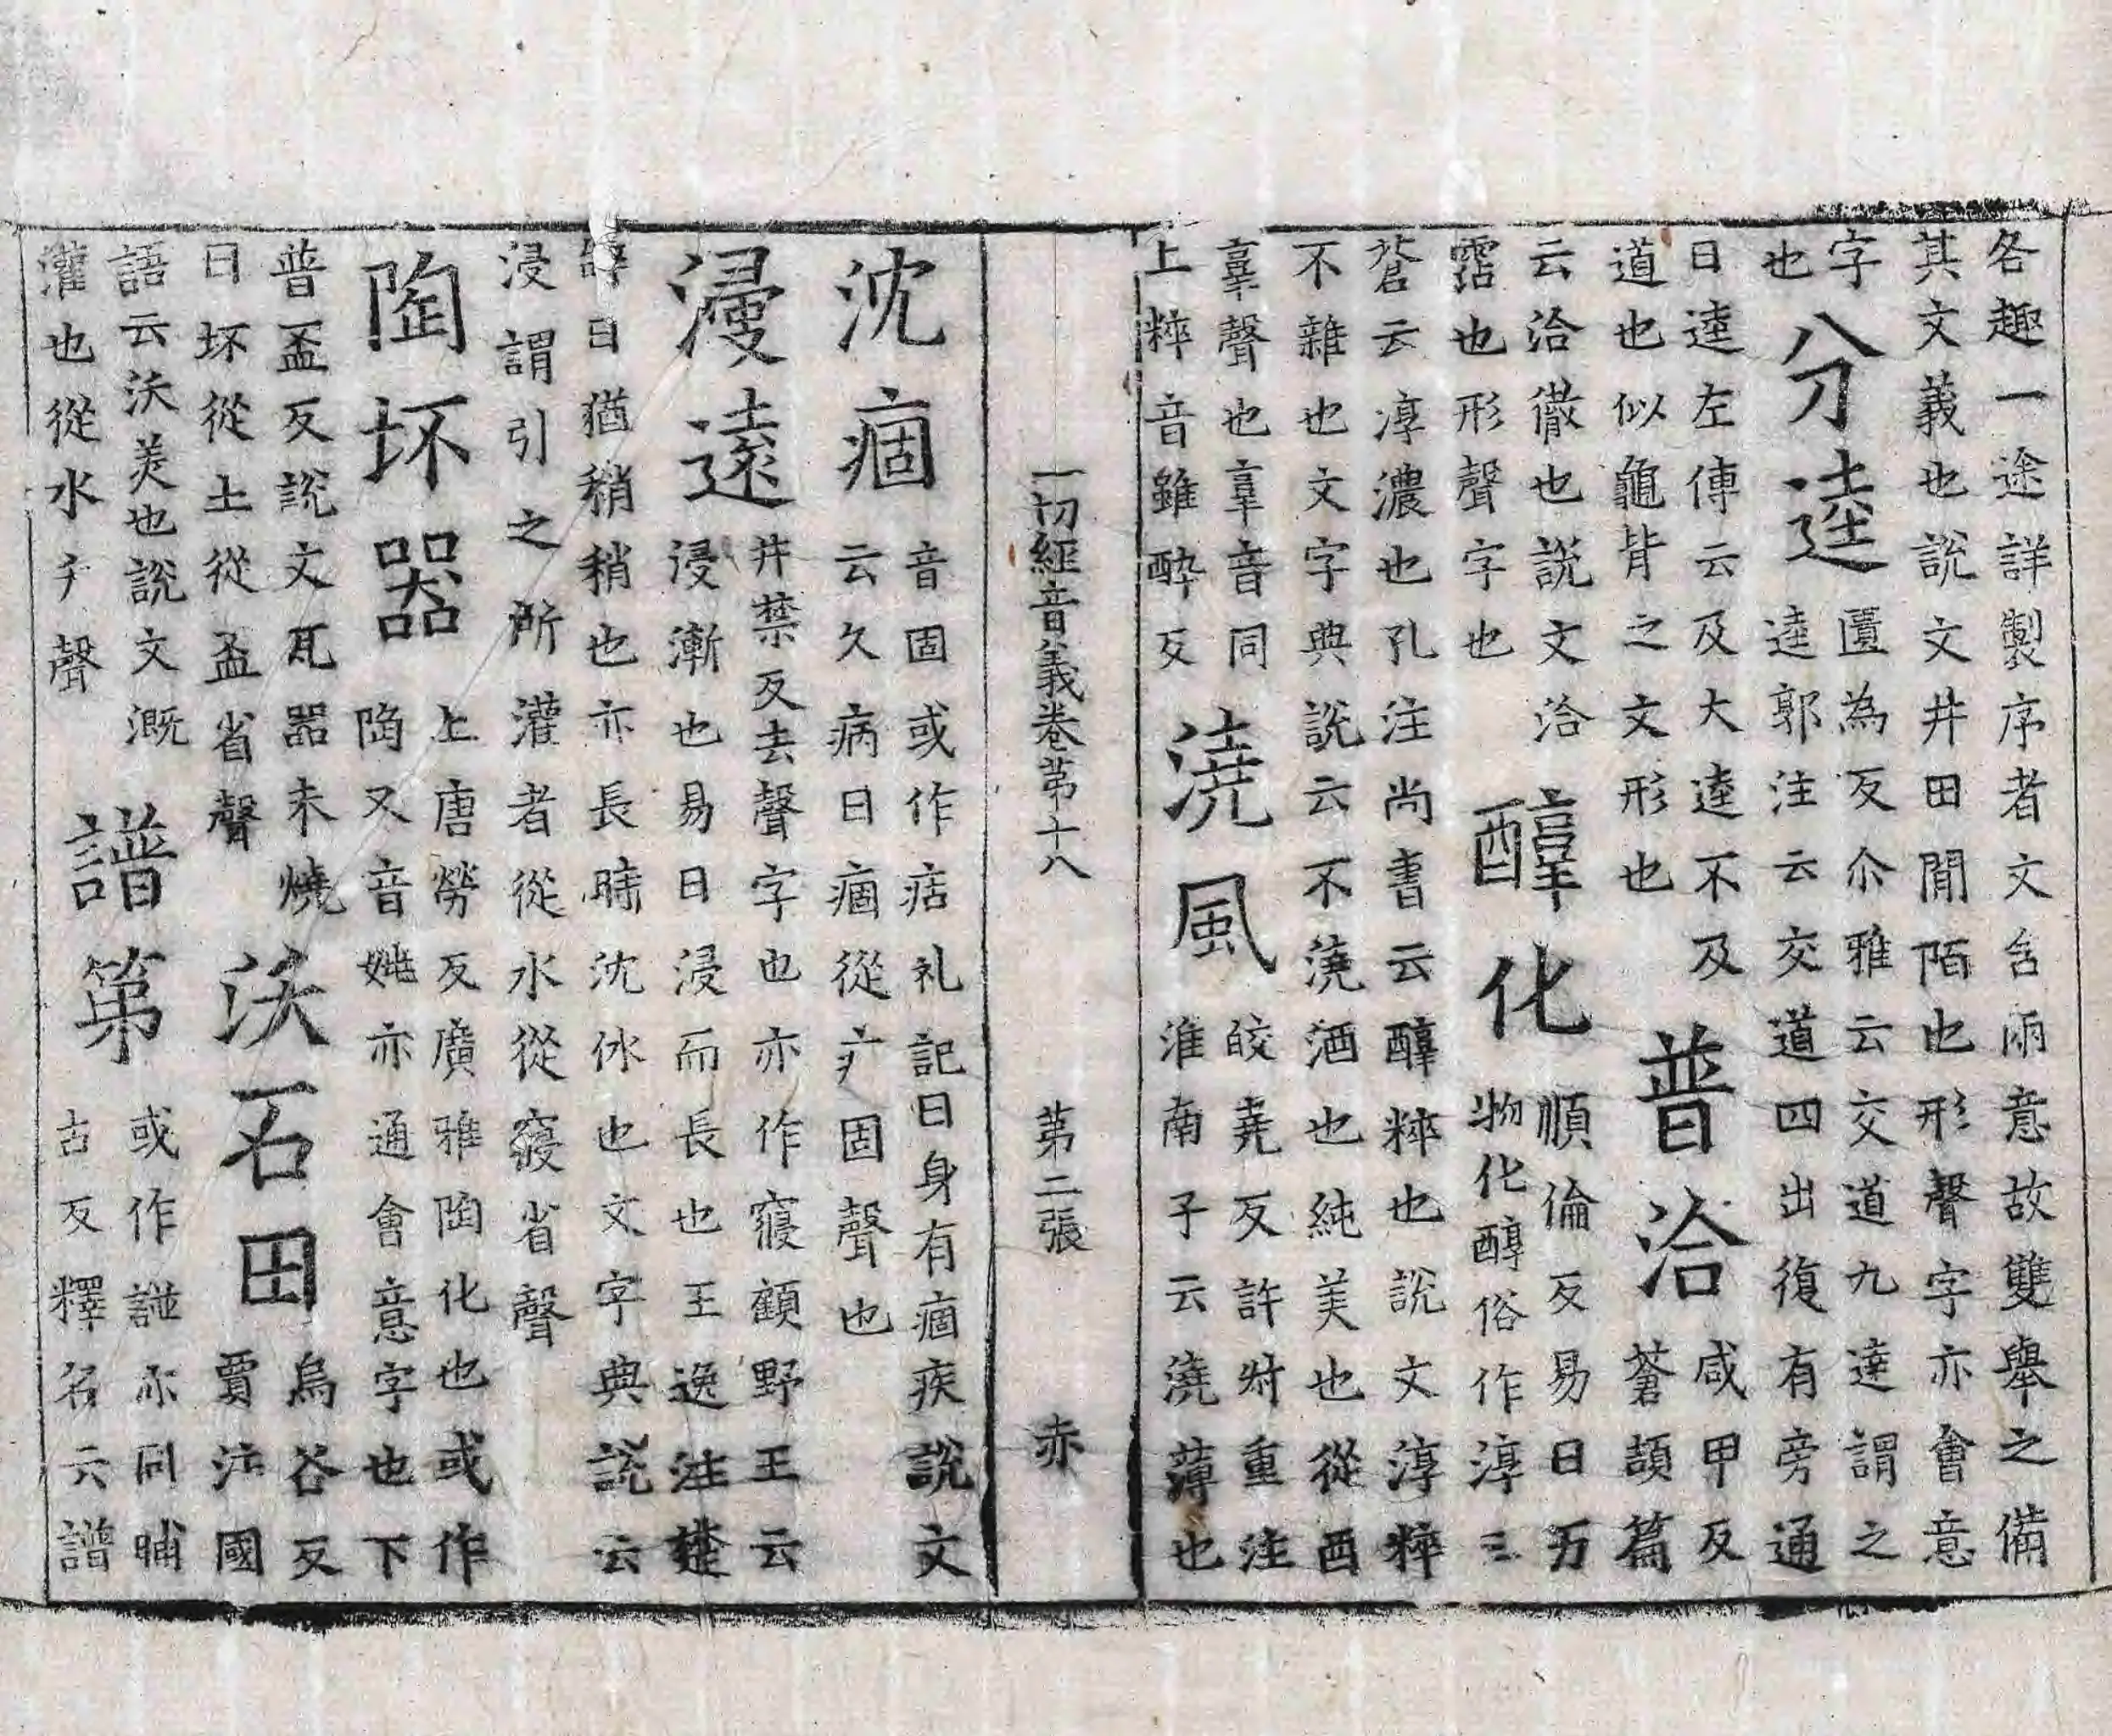 各趣一途詳製序者文含兩意故雙舉之備
其文義也說文井田間陌也形聲字亦會意
字
也
分逵
匱為反尒雅云交道九達謂之
逵郭注云交道四出復有旁通
曰逵左傳云及大逵不及
道也似龜背之文形也
普洽
咸甲反
蒼頡篇
云洽徹也說文洽
霑也形聲字也
醇化
順倫反易曰万
物化醇俗作淳三
蒼云淳濃也孔注尚書云醇粹也說文淳粹
不雜也文字典說云不澆酒也純美也從酉
𦎫聲也𦎫音同
上粹音雖醉反
澆風
皎堯反許尗重注
淮南子云澆薄也
一切經音義卷第十八 第二張 赤
沈痼
音固或作㽽礼記曰身有痼疾說文
云久病曰痼從疒固聲也
浸遠
井禁反去聲字也亦作寖顧野王云
浸漸也易曰浸而長也王逸注楚
辭曰猶稍稍也亦長時沈休也文字典說云
浸謂引之所灌者從水從寑省聲
陶坏器
上唐勞反廣雅陶化也或作
陶又音姚亦通會意字也下
普盃反說文瓦器未燒
曰坏從土從盃省聲
沃石田
烏谷反
賈注國
語云沃美也說文溉
灌也從水夭聲
譜第
或作𧩂亦同晡
古反釋名云譜